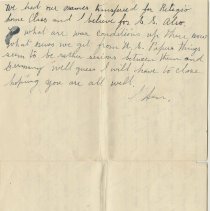 We had our names transfered for Religio
home Class and I believe for S. S. Also.
what are war conditions up there now
what news we get from U. S. Papers Things
seem to be rather serious between them and
Germany. well guess I will have to close
hoping you are all well.